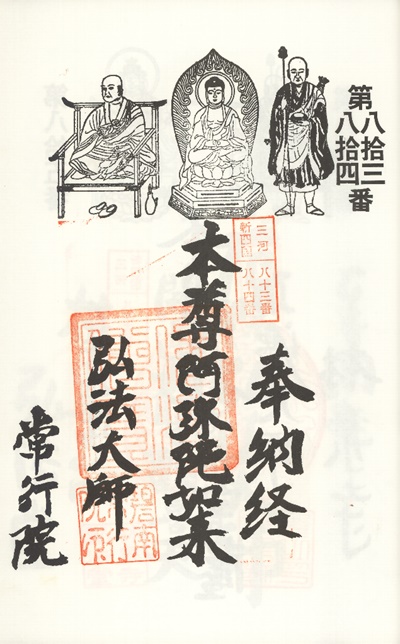 第八拾三
八拾四番
三河 八十三番
新四国 八十四番
奉納経
本尊阿弥陀如来
弘法大師
常行院